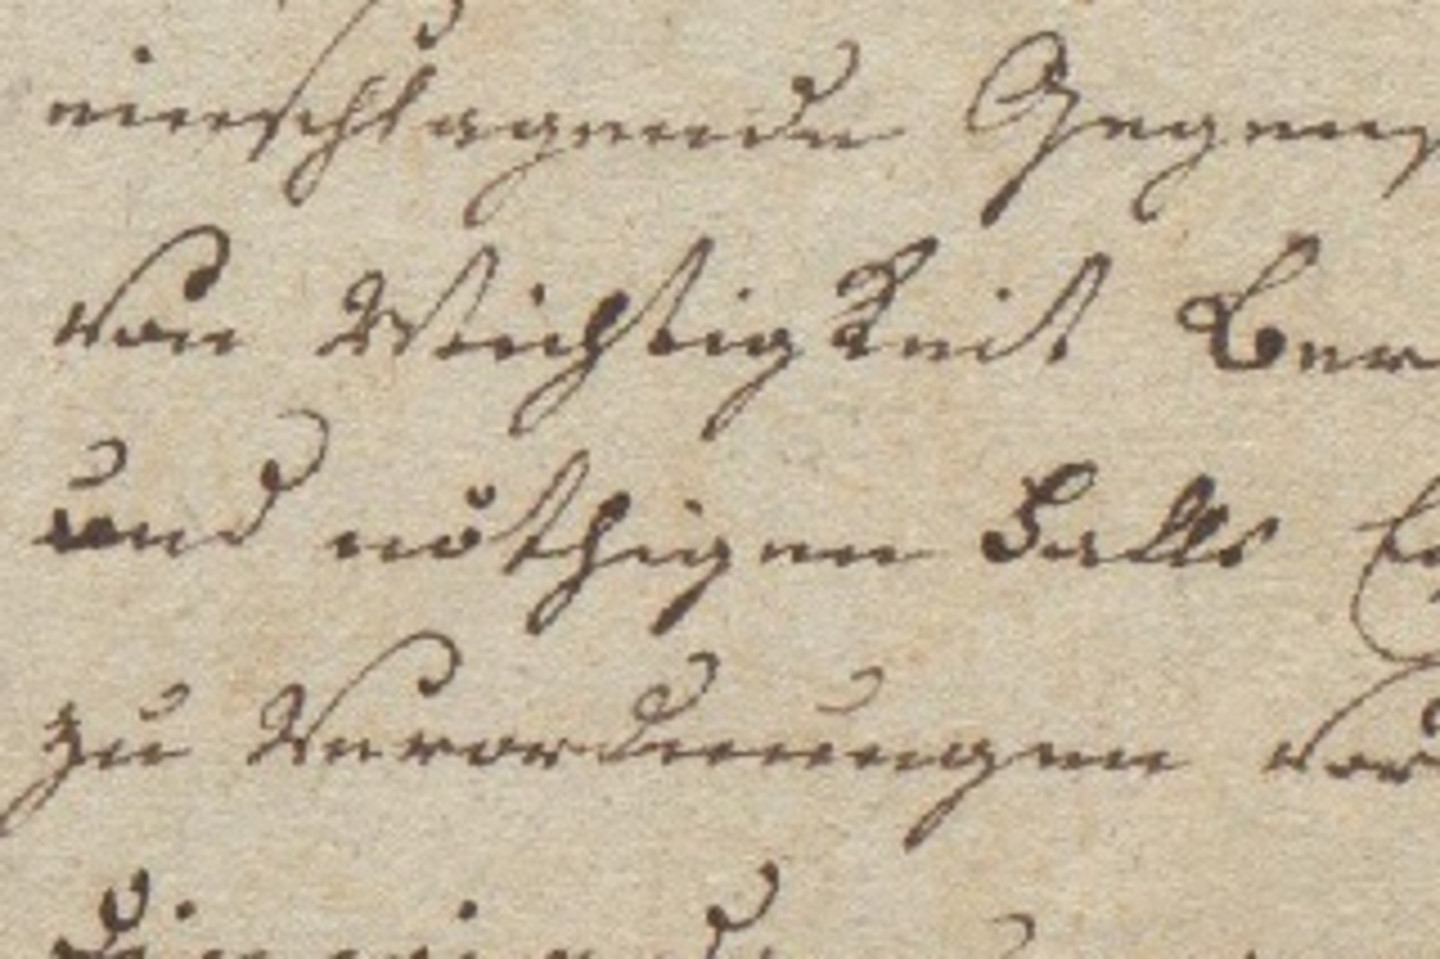 einschlagende Gegens
von Wichtigkeit Ber
und nöthigen Falls
zu Verordnungen vor